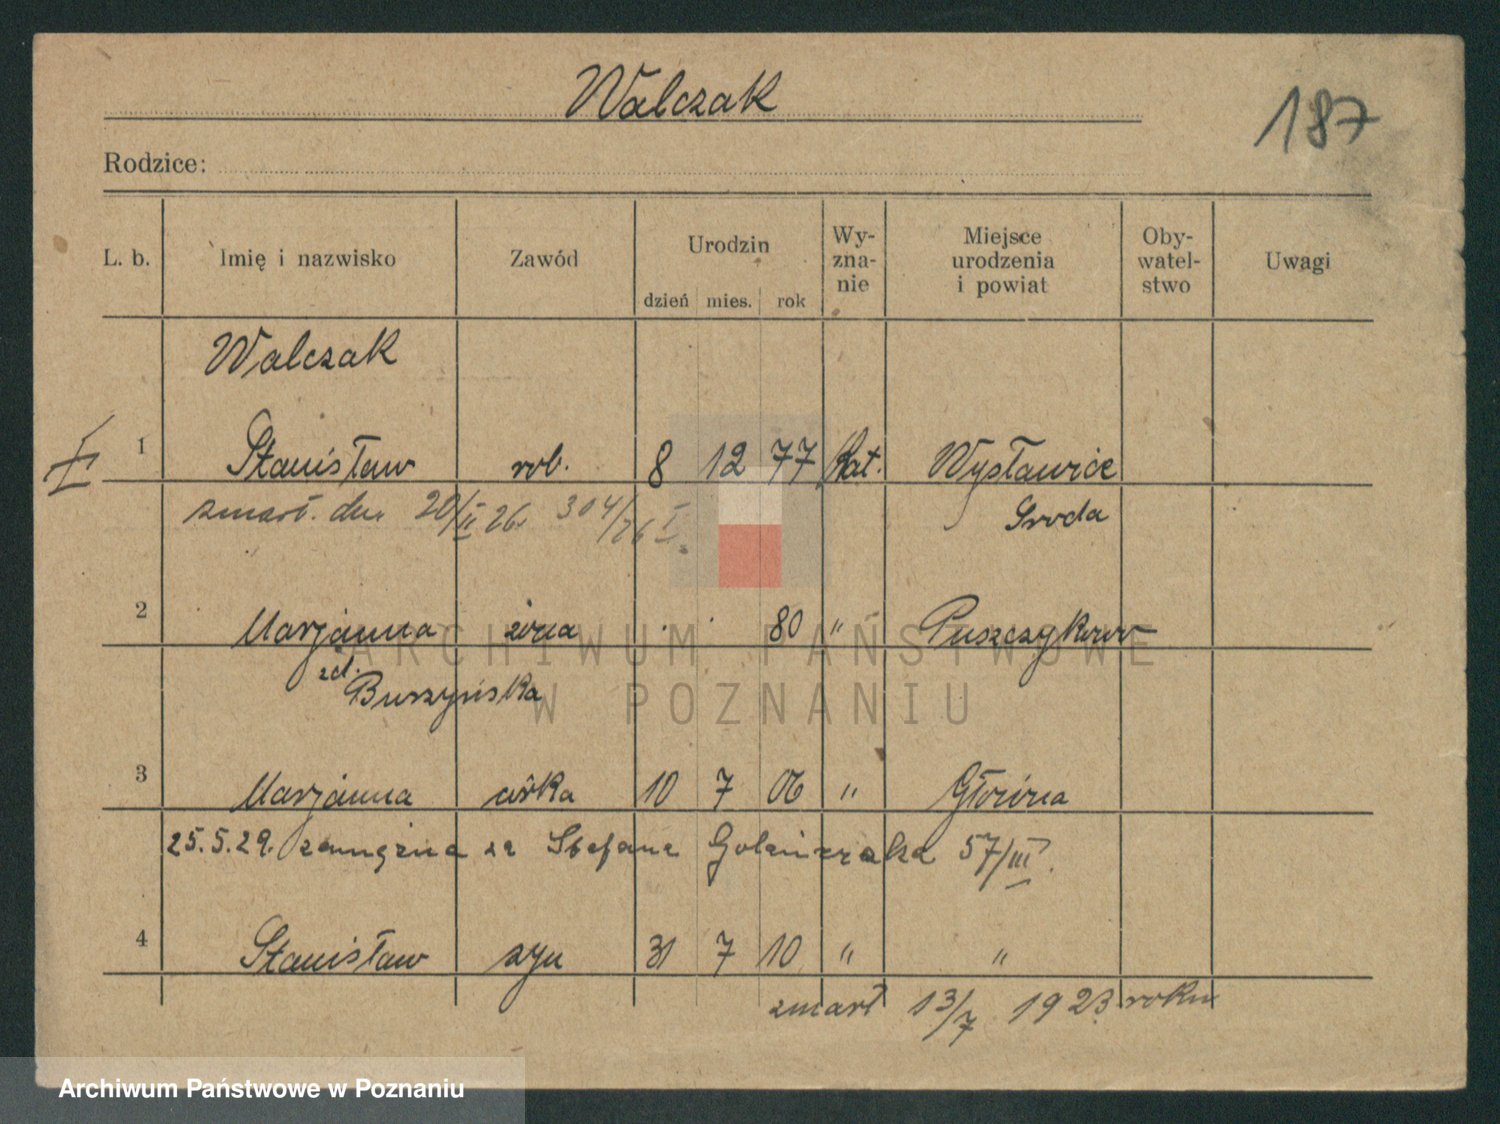 Walczak
187
Rodzice:
L. b. Imię i nazwisko Zawód Urodzin dzień mies. rok Wy-zna-nie Miejsce urodzenia i powiat Oby-watel-stwo Uwagi
Walczak
1 Stanisław rob. 8 12 77 Kat. Wysławice
zmarł. dn. 20/II 26. 304/26 I. Sroda
2 Marjanna żona . . 80 " Puszczykowo
zd. Buszyńska
3 Marjanna córka 10 7 06 " Główna
25.5.29. zamężna za Stefana 57/III.
4 Stanisław syn 31 7 10 " "
zmarł 13/7 1923 roku
ARCHIWUM PAŃSTWOWE
W POZNANIU
Archiwum Państwowe w Poznaniu